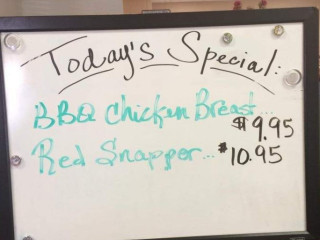 Today's Special:
BBQ Chicken Breast...
$9.95
Red Snapper... $10.95